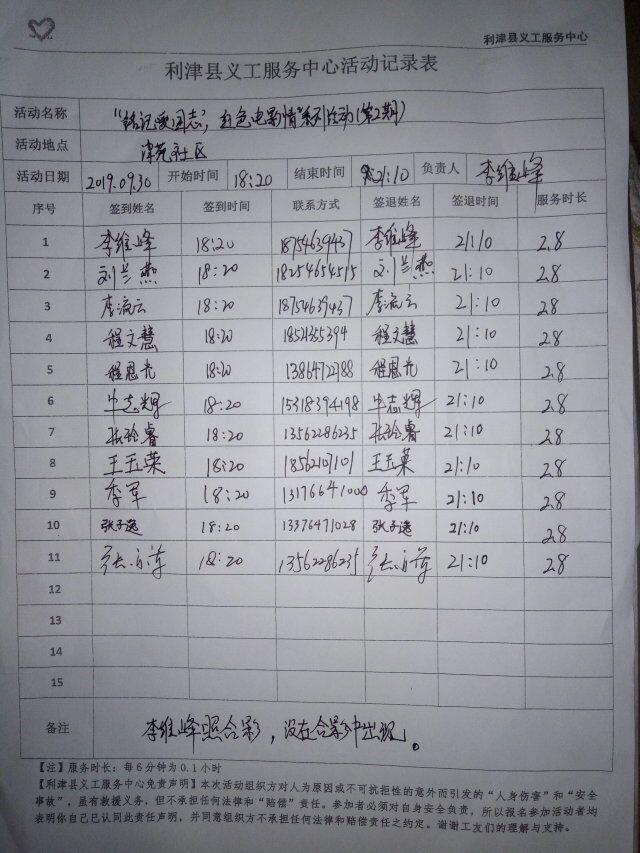 利津县义工服务中心
利津县义工服务中心活动记录表
活动名称 “铭记爱国志，红色电影情”系列活动(第2期)
活动地点 津苑社区
活动日期 2019.09.30 开始时间 18:20 结束时间 21:10 负责人 李维峰
序号 签到姓名 签到时间 联系方式 签退姓名 签退时间 服务时长
1 李维峰 18:20 18754639437 李维峰 21:10 2.8
2 刘兰燕 18:20 18254654515 刘兰燕 21:10 2.8
3 李流云 18:20 18754639437 李流云 21:10 2.8
4 程文慧 18:20 18521355394 程文慧 21:10 2.8
5 程恩光 18:20 13864727988 程恩光 21:10 2.8
6 毕志辉 18:20 15318394198 毕志辉 21:10 2.8
7 张玲睿 18:20 13562286235 张玲睿 21:10 2.8
8 王玉荣 18:20 18562107101 王玉荣 21:10 2.8
9 李军 18:20 13176641000 李军 21:10 2.8
10 张子逸 18:20 13376471028 张子逸 21:10 2.8
11 18:20 13562286235 21:10 2.8
12
13
14
15
备注 李维峰照合影，没在合影中出现。
【注】服务时长：每6分钟为0.1小时
【利津县义工服务中心免责声明】本次活动组织方对人为原因或不可抗拒性的意外而引发的“人身伤害”和“安全
事故”，虽有救援义务，但不承担任何法律和“赔偿”责任。参加者必须对自身安全负责，所以报名参加活动者均
表明你自己已认同此责任声明，并同意组织方不承担任何法律和赔偿责任之约定。谢谢工友们的理解与支持。